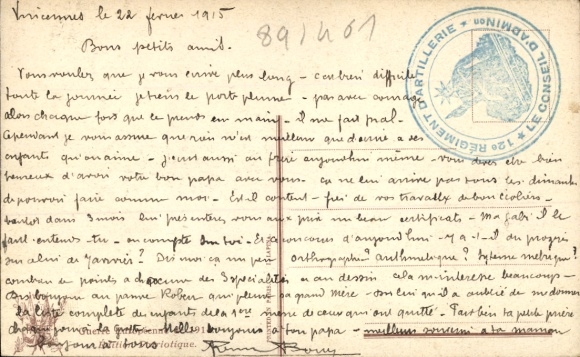 Vincennes le 22 février 1915
891401
Bons petits amis.
Vous voulez que je vous écrive plus long - combien difficile
toute la journée je tiens le porte plume - pas avec courage
alors chaque fois que le prends en main - il me fait mal.
Cependant je vous assure que rien n'est meilleur que d'écrire à ses
enfants qu'on aime - j'écris aussi au front aujourd'hui même - vous devez être bien
heureux d'avoir votre bon papa avec vous - ça ne lui arrive pas tous les dimanches
de pouvoir faire comme moi - Est-il content - fier de vos travaux de bon écoliers -
dans 3 mois lui présenterez vous aux prix un beau certificat - Ma Gabi il le
faut - entends-tu - on compte sur toi - Et ce concours d'aujourd'hui - y a-t-il du progrès
sur celui de Janvier? Dis moi ça un peu orthographe? arithmétique? système métrique?
combien en points à chacune des 3 spécialités - au dessin cela m'intéresse beaucoup -
bonjour au pauvre Robert qui pleure sa grand mère - dis lui qu'il a oublié de me donner
la liste complète des enfants de la 1ère même de ceux qui ont quitté - Fais bien ta petite prière
chaque jour - bonjour à ton papa - meilleur souvenir à ta maman
bonjour à tous
12e REGIMENT D'ARTILLERIE * LE CONSEIL D'ADMINon *